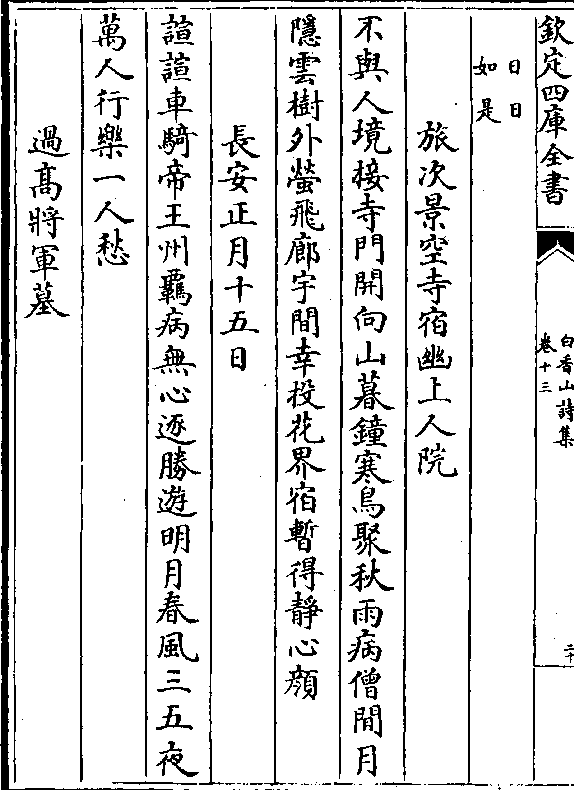 欽定四庫全書
白香山詩集
卷十三
二十
日日
如是
旅次景空寺宿幽上人院
不與人境接寺門開向山暮鐘寒鳥聚秋雨病僧閒月
隱雲樹外螢飛廊宇間幸投花界宿暫得靜心顔
長安正月十五日
諠諠車騎帝王州羈病無心逐勝遊明月春風三五夜
萬人行樂一人愁
過高將軍墓